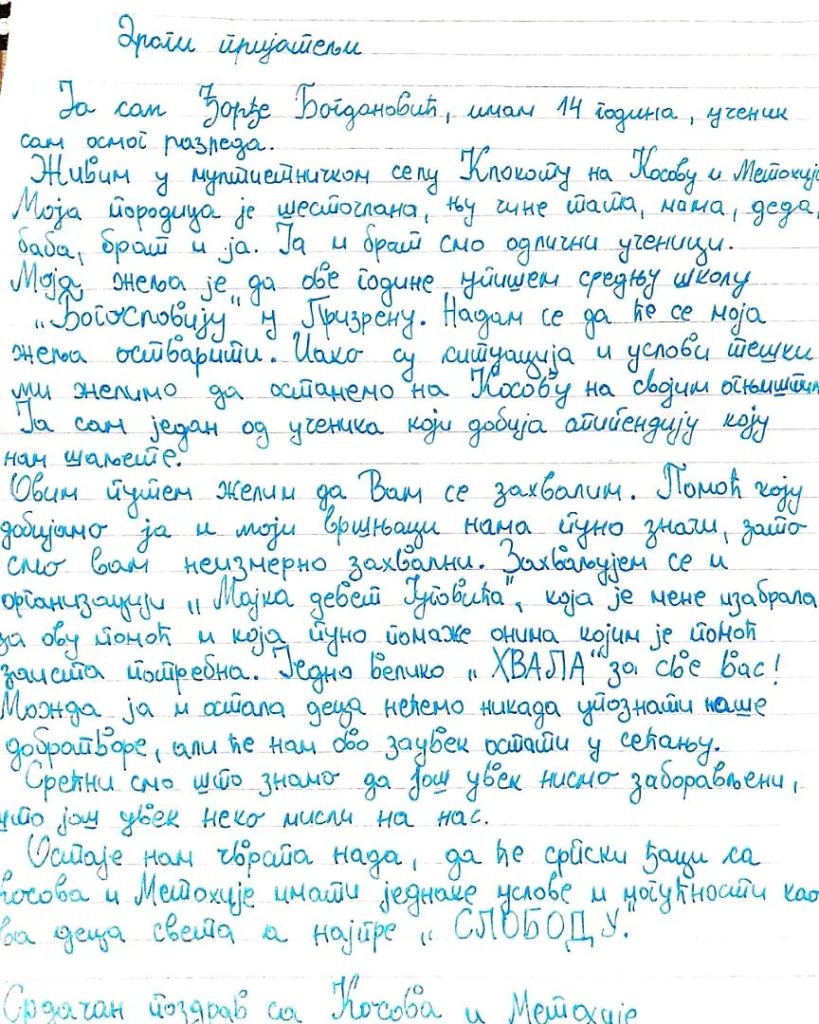 Драги пријатељи
Ја сам Ђорђе Богдановић, имам 14 година, ученик
сам осмог разреда.
Живим у мултиетничком селу Клокоту на Косову и Метохији
Моја породица је шесточлана, њу чине тата, мама, деда,
баба, брат и ја. Ја и брат смо одлични ученици.
Моја жеља је да ове године упишем средњу школу
„Богословију" у Призрену. Надам се да ће се моја
жеља остварити. Иако су ситуација и услови тешки
ми желимо да останемо на Косову на својим огњиштим
Ја сам један од ученика који добија стипендију коју
нам шаљете.
Овим путем желим да Вам се захвалим. Помоћ коју
добијамо ја и моји вршњаци нама пуно значи, зато
смо вам неизмерно захвални. Захваљујем се и
организацији „Мајка девет Југовића", која је мене изабрала
за ову помоћ и која пуно помаже онима којим је помоћ
заиста потребна. Једно велико „ХВАЛА" за све вас!
Можда ја и остала деца нећемо никада упознати наше
добратворе, али ће нам ово заувек остати у сећању.
Срећни смо што знамо да још увек нисмо заборављени,
што још увек неко мисли на нас.
Остаје нам чврста нада, да ће српски ђаци са
Косова и Метохије имати једнаке услове и могућности као
сва деца света а најпре „СЛОБОДУ."
Срдачан поздрав са Косова и Метохије